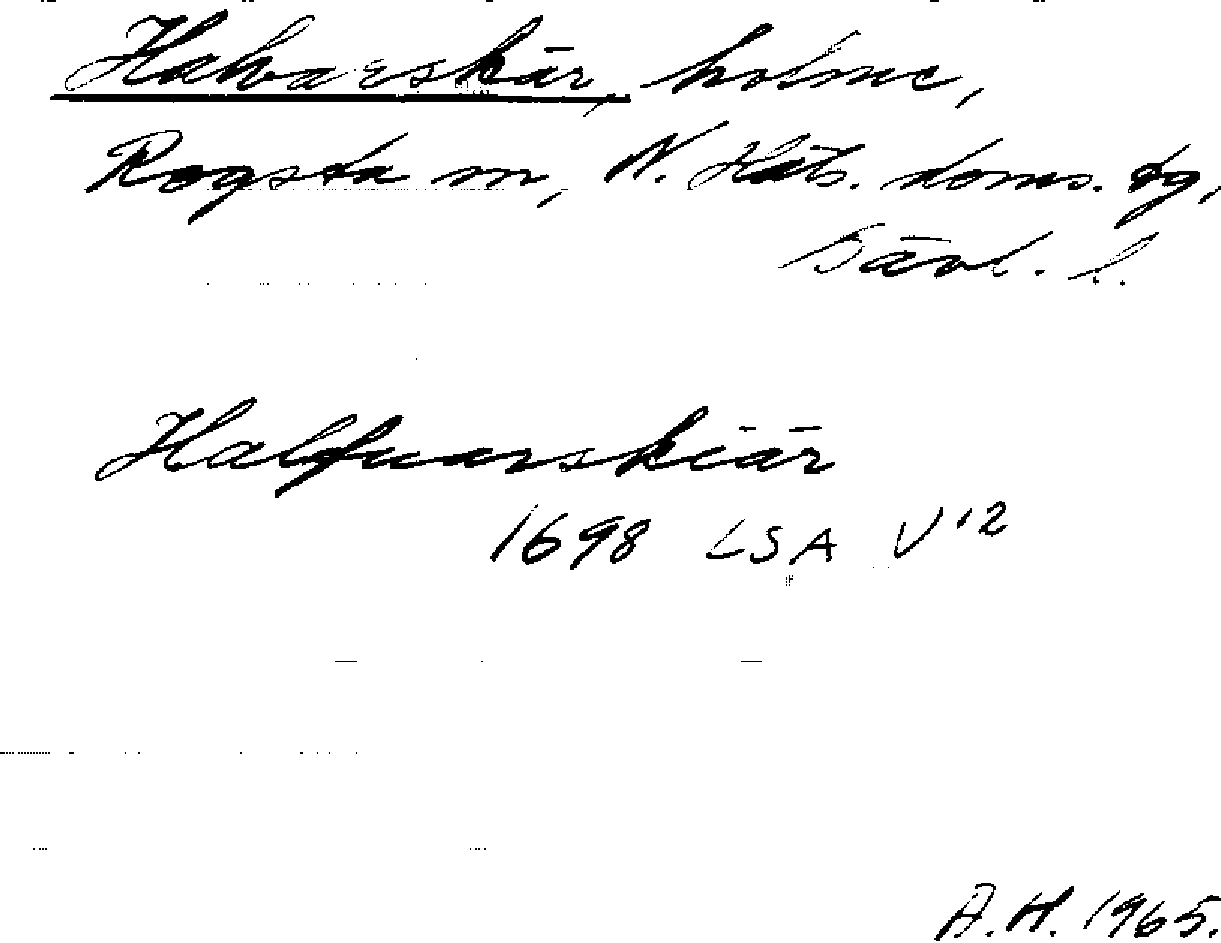 Halvarskär, holme,
Rogsta sn, N. Häls. doms. tg,
Gävl. l.
Halfuarskiär
1698 LSA V12
A.H. 1965.